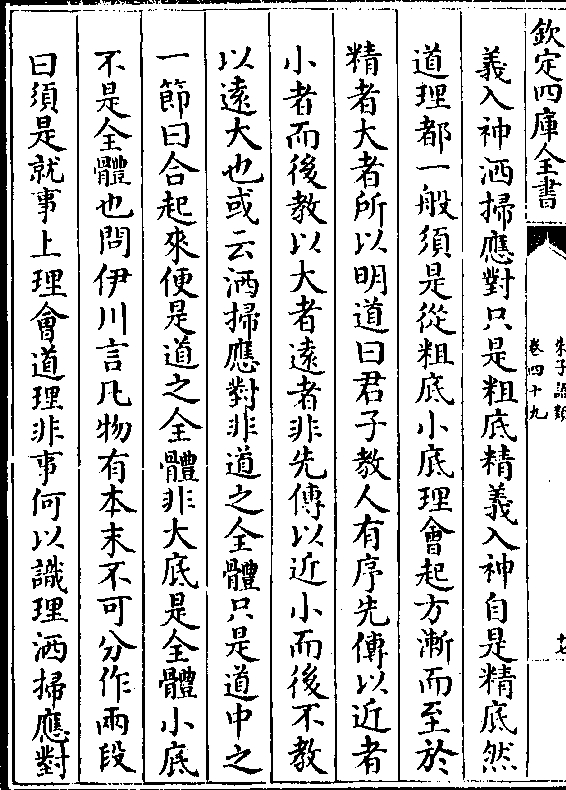 欽定四庫全書
朱子語類
卷四十九
十七
義入神洒掃應對只是粗底精義入神自是精底然
道理都一般須是從粗底小底理會起方漸而至於
精者大者所以明道曰君子教人有序先傳以近者
小者而後教以大者遠者非先傳以近小而後不教
以遠大也或云洒掃應對非道之全體只是道中之
一節曰合起來便是道之全體非大底是全體小底
不是全體也問伊川言凡物有本末不可分作兩段
曰須是就事上理會道理非事何以識理洒掃應對